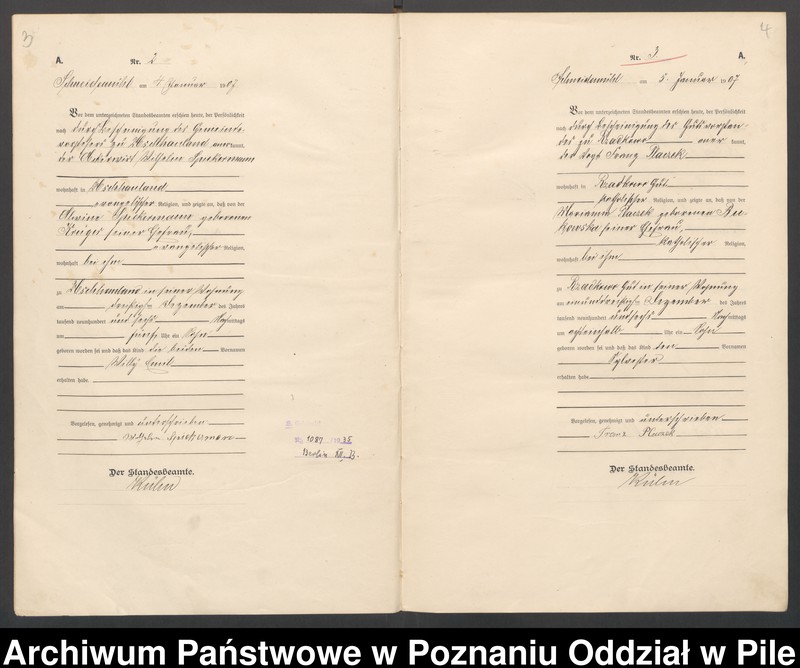 3
A.
Nr. 2
Schneidemühl am 4. Januar 1907
Vor dem unterzeichneten Standesbeamten erschien heute, der Persönlichkeit
nach durch Bescheinigung des Gemeinde-
vorstehers zu kannt,
der Ackerwirt Wilhelm Spickermann
wohnhaft in
evangelischer Religion, und zeigte an, daß von der
Alwine Spickermann geborenen
Krüger seiner Ehefrau,
evangelischer Religion,
wohnhaft bei ihm
zu in seiner Wohnung
am Dezember des Jahres
tausend neunhundert und sechs Nachmittags
um fünf Uhr ein Sohn
geboren worden sei und daß das Kind die beiden Vornamen
Willy Emil
erhalten habe.
Vorgelesen, genehmigt und unterschrieben
Wilhelm Spickermann
Der Standesbeamte.
No 1087
Berlin
4
Nr. 3
A.
Schneidemühl am 5. Januar 1907
Vor dem unterzeichneten Standesbeamten erschien heute, der Persönlichkeit
nach durch Bescheinigung des Gutsvorstan-
des zu Rzadkowo kannt,
der Vogt Franz Placzek
wohnhaft in Rzadkowo Gut
katholischer Religion, und zeigte an, daß von der
Marianna Placzek geborenen Bu-
kowska seiner Ehefrau,
katholischer Religion,
wohnhaft bei ihm
zu Rzadkowo Gut in seiner Wohnung
am einunddreißigsten Dezember des Jahres
tausend neunhundert und sechs Nachmittags
um achteinhalb Uhr ein Sohn
geboren worden sei und daß das Kind den Vornamen
Sylvester
erhalten habe.
Vorgelesen, genehmigt und unterschrieben
Franz Placzek
Der Standesbeamte.
Archiwum Państwowe w Poznaniu Oddział w Pile